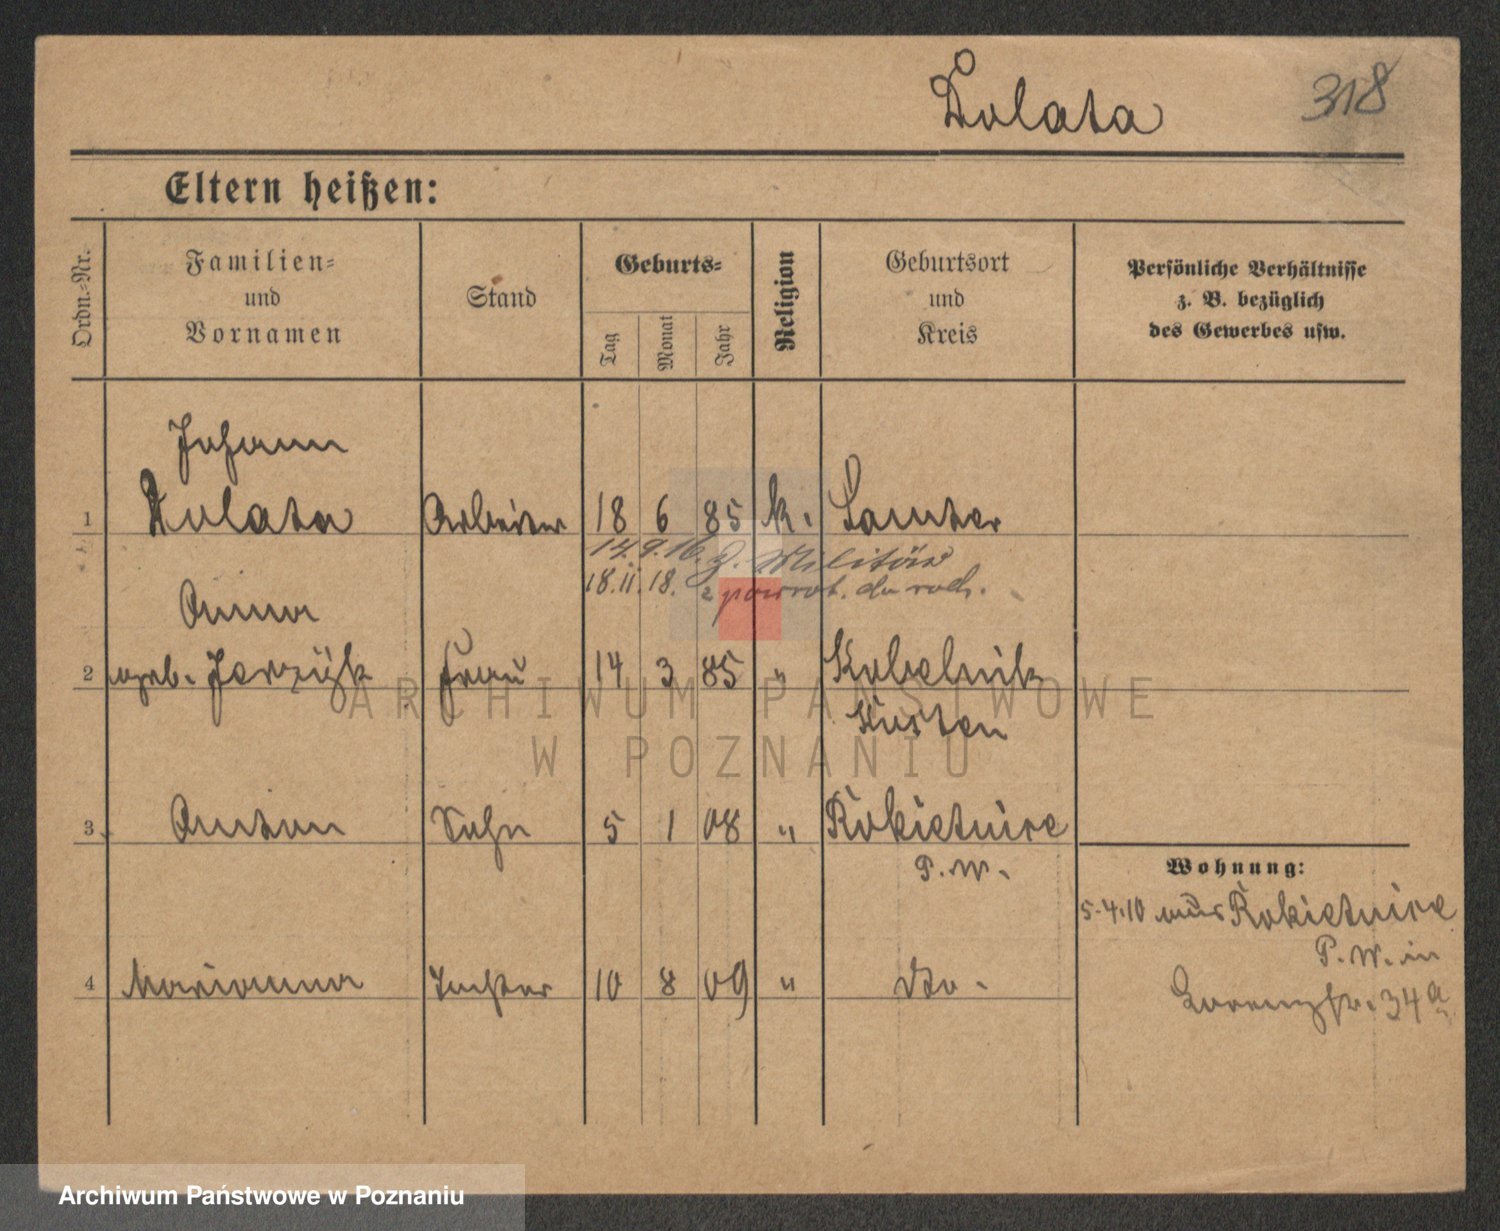 Dolata 318
Eltern heißen:
Ordn.-Nr.
Familien-
und
Vornamen
Stand
Geburts-
Tag
Monat
Jahr
Religion
Geburtsort
und
Kreis
Persönliche Verhältnisse
z. B. bezüglich
des Gewerbes usw.
Johann
1 Dolata Arbeiter 18 6 85 k. Samter
14.9.16. z. Militär
18.11.18. z powrot. do rod.
Anna
2 geb. Jerzÿk Frau 14 3 85 " Kobelnik
Kosten
3 Anton Sohn 5 1 08 " Rokietnice
P.W.
Wohnung:
5.4.10 aus Rokietnice
P.W. in
4 Marianna Tochter 10 8 09 " Do.
Lorenzstr. 34a
ARCHIWUM PAŃSTWOWE
W POZNANIU
Archiwum Państwowe w Poznaniu